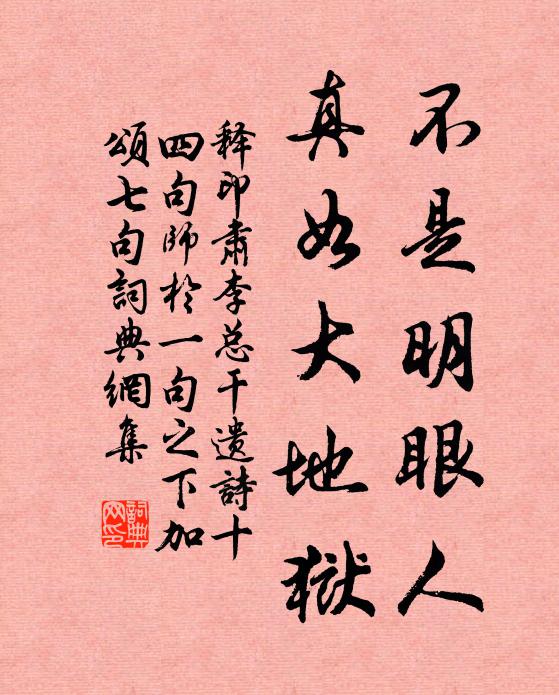 不是明眼人
真如大地獄
释印肅李总干遗詩十
四句師於一句之下加
頌七句詞典網集
詞典网印